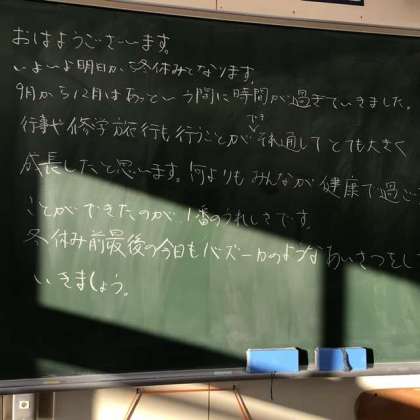 おはようございます。
いよいよ明日から冬休みとなります。
9月から12月はあっという間に時間が過ぎていきました。
行事や修学旅行も行うことができ、それ通してとても大きく
成長したと思います。何よりもみんなが健康で過ご
ことができたのが、1番のうれしさです。
冬休み前最後の今日もバズーカのようなあいさつをして
いきましょう。